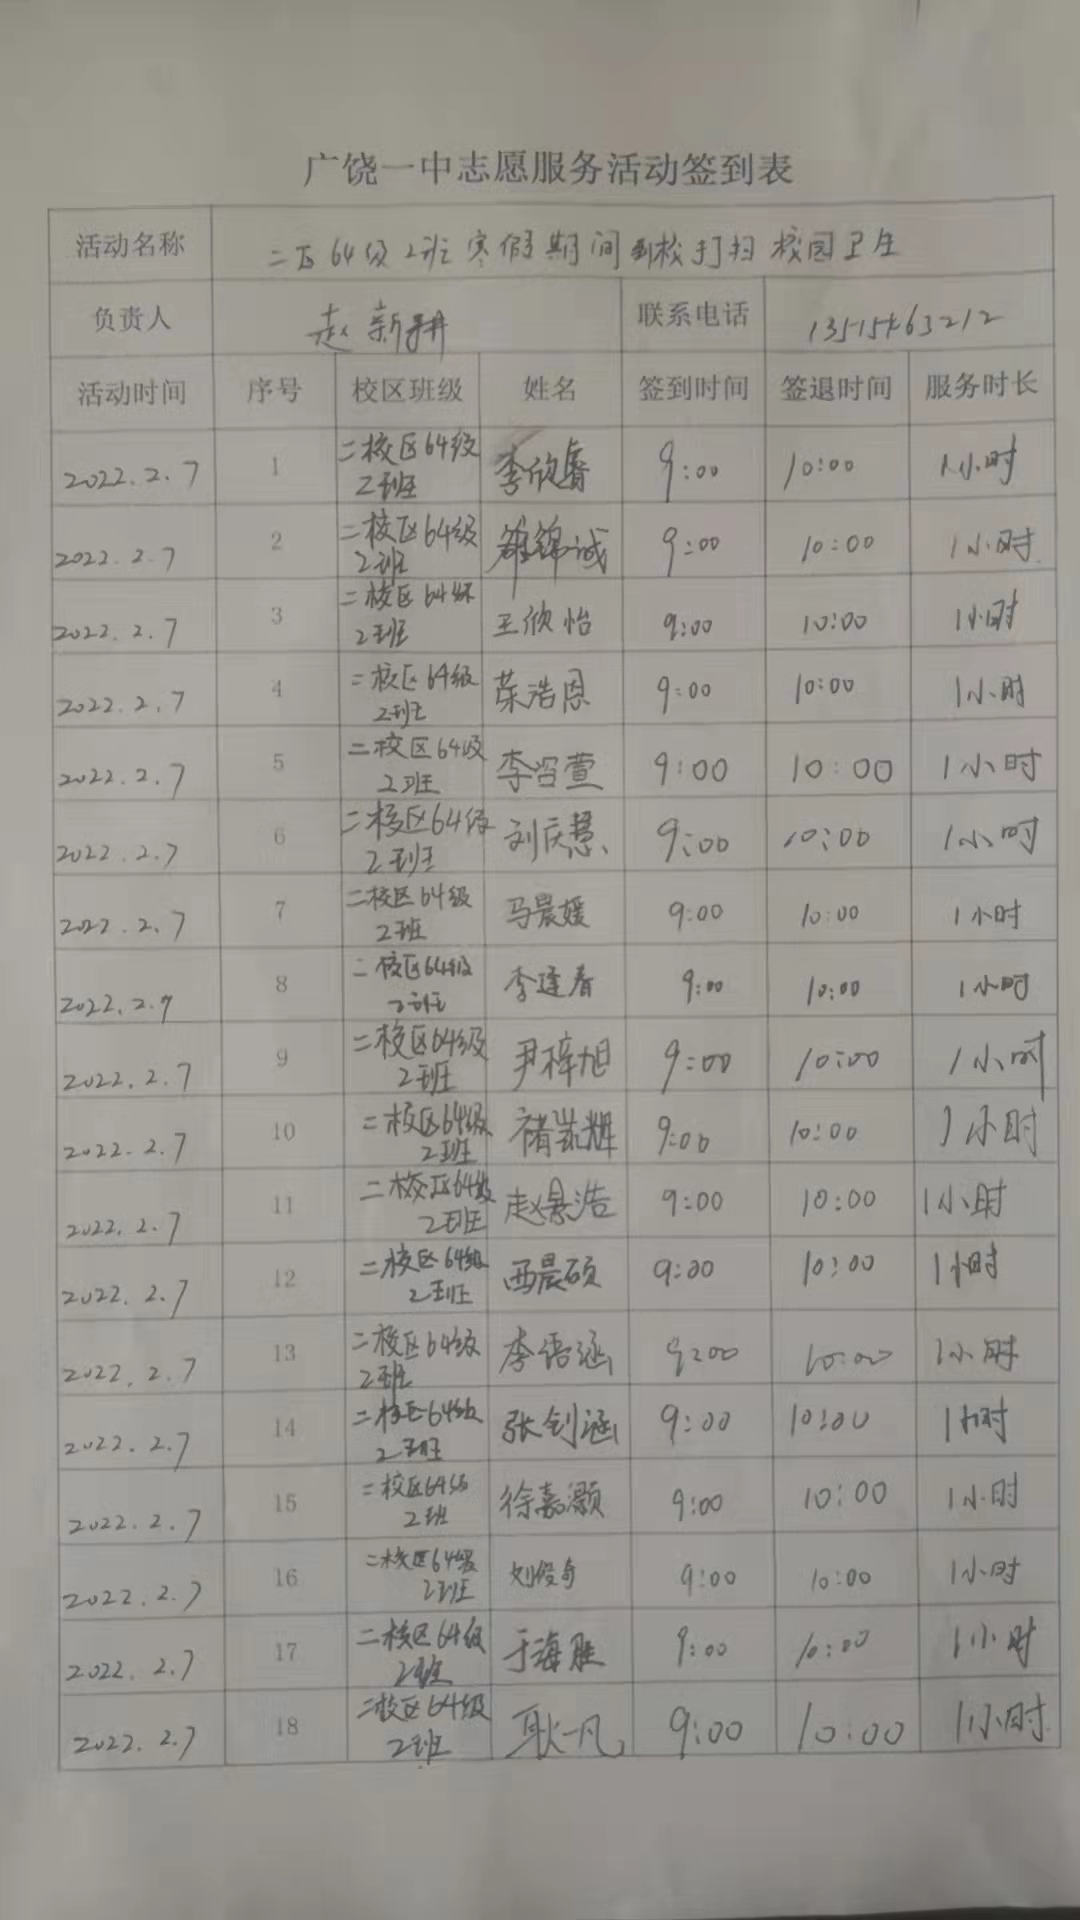 广饶一中志愿服务活动签到表
活动名称 二区64级2班寒假期间到校打扫校园卫生
负责人 赵新 联系电话 13515463212
活动时间 序号 校区班级 姓名 签到时间 签退时间 服务时长
2022.2.7 1 二校区64级2班 李欣睿 9:00 10:00 1小时
2022.2.7 2 二校区64级2班 锦诚 9:00 10:00 1小时
2022.2.7 3 二校区64级2班 王欣怡 9:00 10:00 1小时
2022.2.7 4 二校区64级2班 荣浩恩 9:00 10:00 1小时
2022.2.7 5 二校区64级2班 李召萱 9:00 10:00 1小时
2022.2.7 6 二校区64级2班 刘庆慧 9:00 10:00 1小时
2022.2.7 7 二校区64级2班 马晨媛 9:00 10:00 1小时
2022.2.7 8 二校区64级2班 李逢春 9:00 10:00 1小时
2022.2.7 9 二校区64级2班 尹梓旭 9:00 10:00 1小时
2022.2.7 10 二校区64级2班 褚凯辉 9:00 10:00 1小时
2022.2.7 11 二校区64级2班 赵景浩 9:00 10:00 1小时
2022.2.7 12 二校区64级2班 西晨硕 9:00 10:00 1小时
2022.2.7 13 二校区64级2班 李语涵 9:00 10:00 1小时
2022.2.7 14 二校区64级2班 张钊涵 9:00 10:00 1小时
2022.2.7 15 二校区64级2班 徐嘉灏 9:00 10:00 1小时
2022.2.7 16 二校区64级2班 刘俊奇 9:00 10:00 1小时
2022.2.7 17 二校区64级2班 于海胜 9:00 10:00 1小时
2022.2.7 18 二校区64级2班 耿一凡 9:00 10:00 1小时